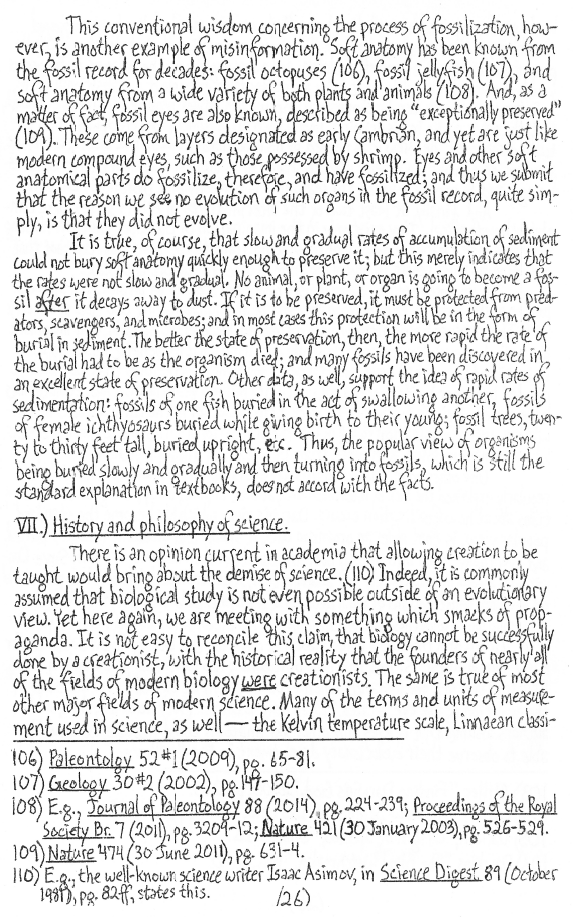 This conventional wisdom concerning the process of fossilization, how-
ever, is another example of misinformation. Soft anatomy has been known from
the fossil record for decades: fossil octopuses (106), fossil jellyfish (107), and
soft anatomy from a wide variety of both plants and animals (108). And, as a
matter of fact, fossil eyes are also known, described as being "exceptionally preserved"
(109). These come from layers designated as early Cambrian, and yet are just like
modern compound eyes, such as those possessed by shrimp. Eyes and other soft
anatomical parts do fossilize, therefore, and have fossilized; and thus we submit
that the reason we see no evolution of such organs in the fossil record, quite sim-
ply, is that they did not evolve.
It is true, of course, that slow and gradual rates of accumulation of sediment
could not bury soft anatomy quickly enough to preserve it; but this merely indicates that
the rates were not slow and gradual. No animal, or plant, or organ is going to become a fos-
sil after it decays away to dust. If it is to be preserved, it must be protected from pred-
ators, scavengers, and microbes; and in most cases this protection will be in the form of
burial in sediment. The better the state of preservation, then, the more rapid the rate of
the burial had to be as the organism died; and many fossils have been discovered in
an excellent state of preservation. Other data, as well, support the idea of rapid rates of
sedimentation: fossils of one fish buried in the act of swallowing another, fossils
of female ichthyosaurs buried while giving birth to their young; fossil trees, twen-
ty to thirty feet tall, buried upright, etc. Thus, the popular view of organisms
being buried slowly and gradually and then turning into fossils, which is still the
standard explanation in textbooks, does not accord with the facts.
VII.) History and philosophy of science.
There is an opinion current in academia that allowing creation to be
taught would bring about the demise of science. (110) Indeed, it is commonly
assumed that biological study is not even possible outside of an evolutionary
view. Yet here again, we are meeting with something which smacks of prop-
aganda. It is not easy to reconcile this claim, that biology cannot be successfully
done by a creationist, with the historical reality that the founders of nearly all
of the fields of modern biology were creationists. The same is true of most
other major fields of modern science. Many of the terms and units of measure-
ment used in science, as well — the Kelvin temperature scale, Linnaean classi-
106) Paleontoloy 52 #1 (2009), pg. 65-81.
107) Geology 30 #2 (2002), pg. 147-150.
108) E.g., Journal of Paleontology 88 (2014), pg. 224-239; Proceedings of the Royal
Society Br. 7 (2011), pg. 3209-12; Nature 421 (30 January 2003), pg. 526-529.
109) Nature 474 (30 June 2011), pg. 631-4.
110) E.g., the well-known science writer Isaac Asimov, in Science Digest 89 (October
1981), pg. 82ff, states this.
(26)